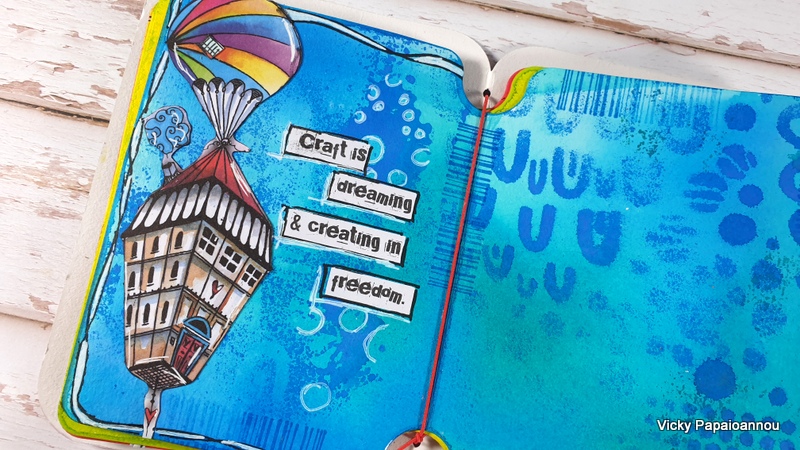 Craft is
dreaming
& creating in
freedom.
Vicky Papaioannou